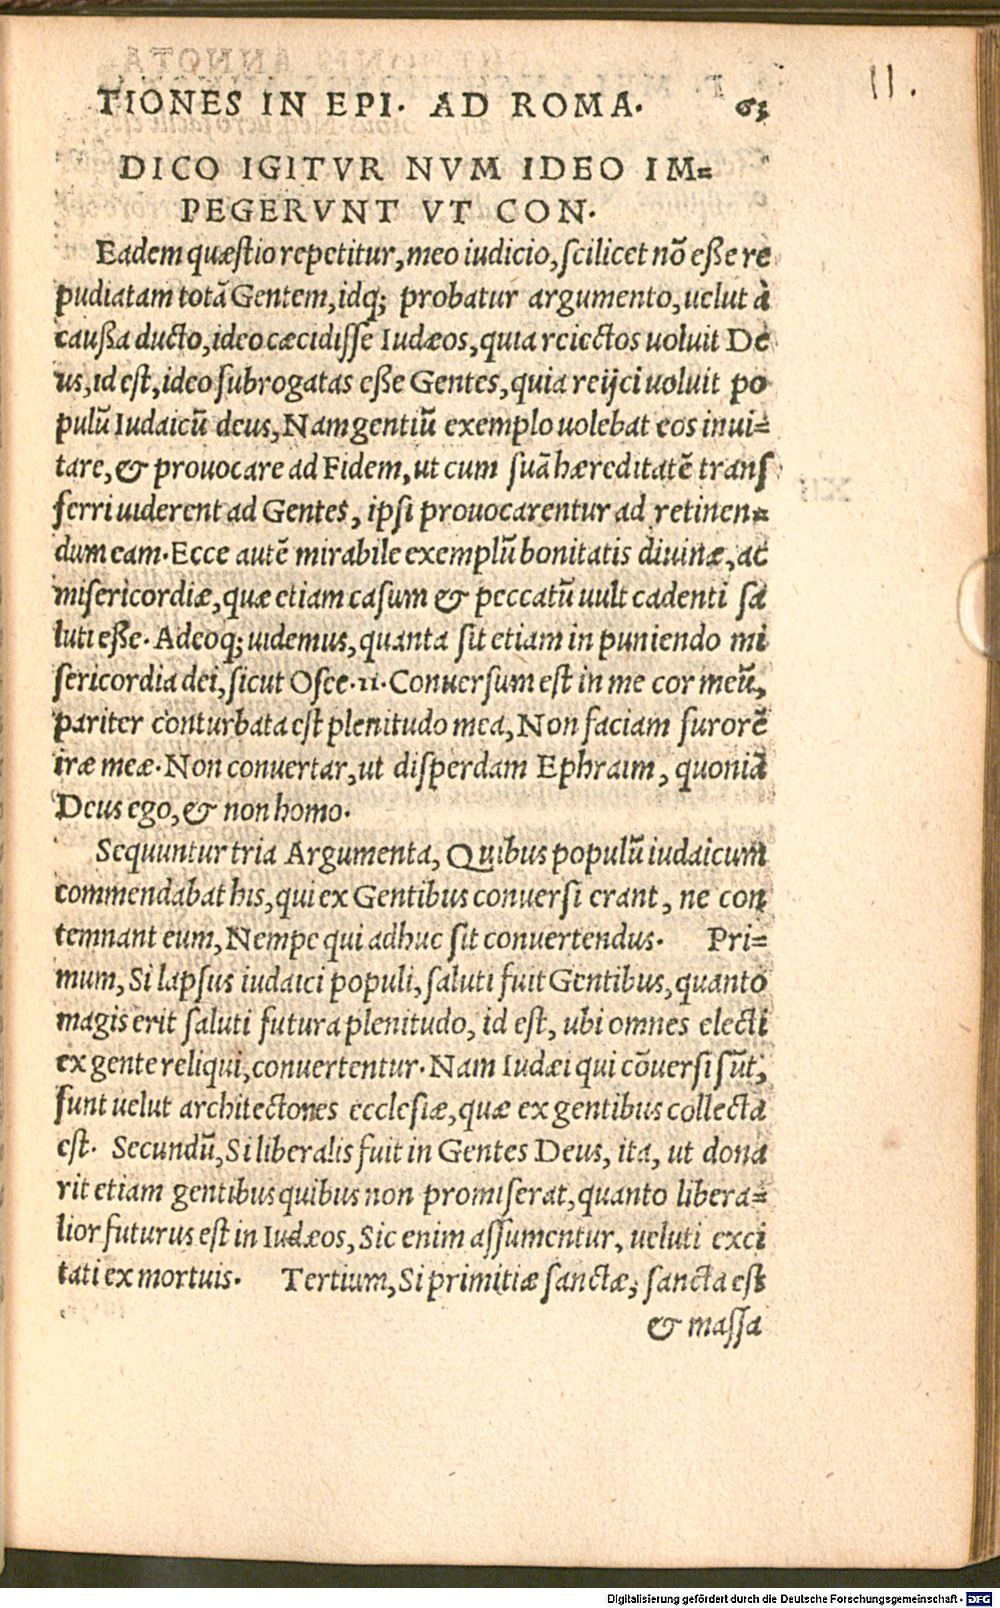 TIONES IN EPI. AD ROMA. 63
11.
DICO IGITVR NVM IDEO IM=
PEGERVNT VT CON.
Eadem quæstio repetitur, meo iudicio, scilicet nõ eße re
pudiatam totã Gentem, idq; probatur argumento, uelut à
caußa ducto, ideo cæcidisse Iudæos, quia reiectos uoluit De
us, id est, ideo subrogatas eße Gentes, quia reijci uoluit po
pulũ Iudaicũ deus, Nam gentiũ exemplo uolebat eos inui=
tare, & prouocare ad Fidem, ut cum suã hæreditatẽ trans
ferri uiderent ad Gentes, ipsi prouocarentur ad retinen=
dum eam. Ecce autẽ mirabile exemplũ bonitatis diuinæ, ac
misericordiæ, quæ etiam casum & peccatũ uult cadenti sa
luti eße. Adeoq; uidemus, quanta sit etiam in puniendo mi
sericordia dei, sicut Osee. 11. Conuersum est in me cor meũ,
pariter conturbata est plenitudo mea, Non faciam furorẽ
iræ meæ. Non conuertar, ut disperdam Ephraim, quoniã
Deus ego, & non homo.
Sequuntur tria Argumenta, Quibus populũ iudaicum
commendabat his, qui ex Gentibus conuersi erant, ne con
temnant eum, Nempe qui adhuc sit conuertendus. Pri=
mum, Si lapsus iudaici populi, saluti fuit Gentibus, quanto
magis erit saluti futura plenitudo, id est, ubi omnes electi
ex gente reliqui, conuertentur. Nam Iudæi qui cõuersi sũt,
sunt uelut architectones ecclesiæ, quæ ex gentibus collecta
est. Secundũ, Si liberalis fuit in Gentes Deus, ita, ut dona
rit etiam gentibus quibus non promiserat, quanto libera=
lior futurus est in Iudæos, Sic enim assumentur, ueluti exci
tati ex mortuis. Tertium, Si primitiæ sanctæ, sancta est
& massa
Digitalisierung gefördert durch die Deutsche Forschungsgemeinschaft - DFG